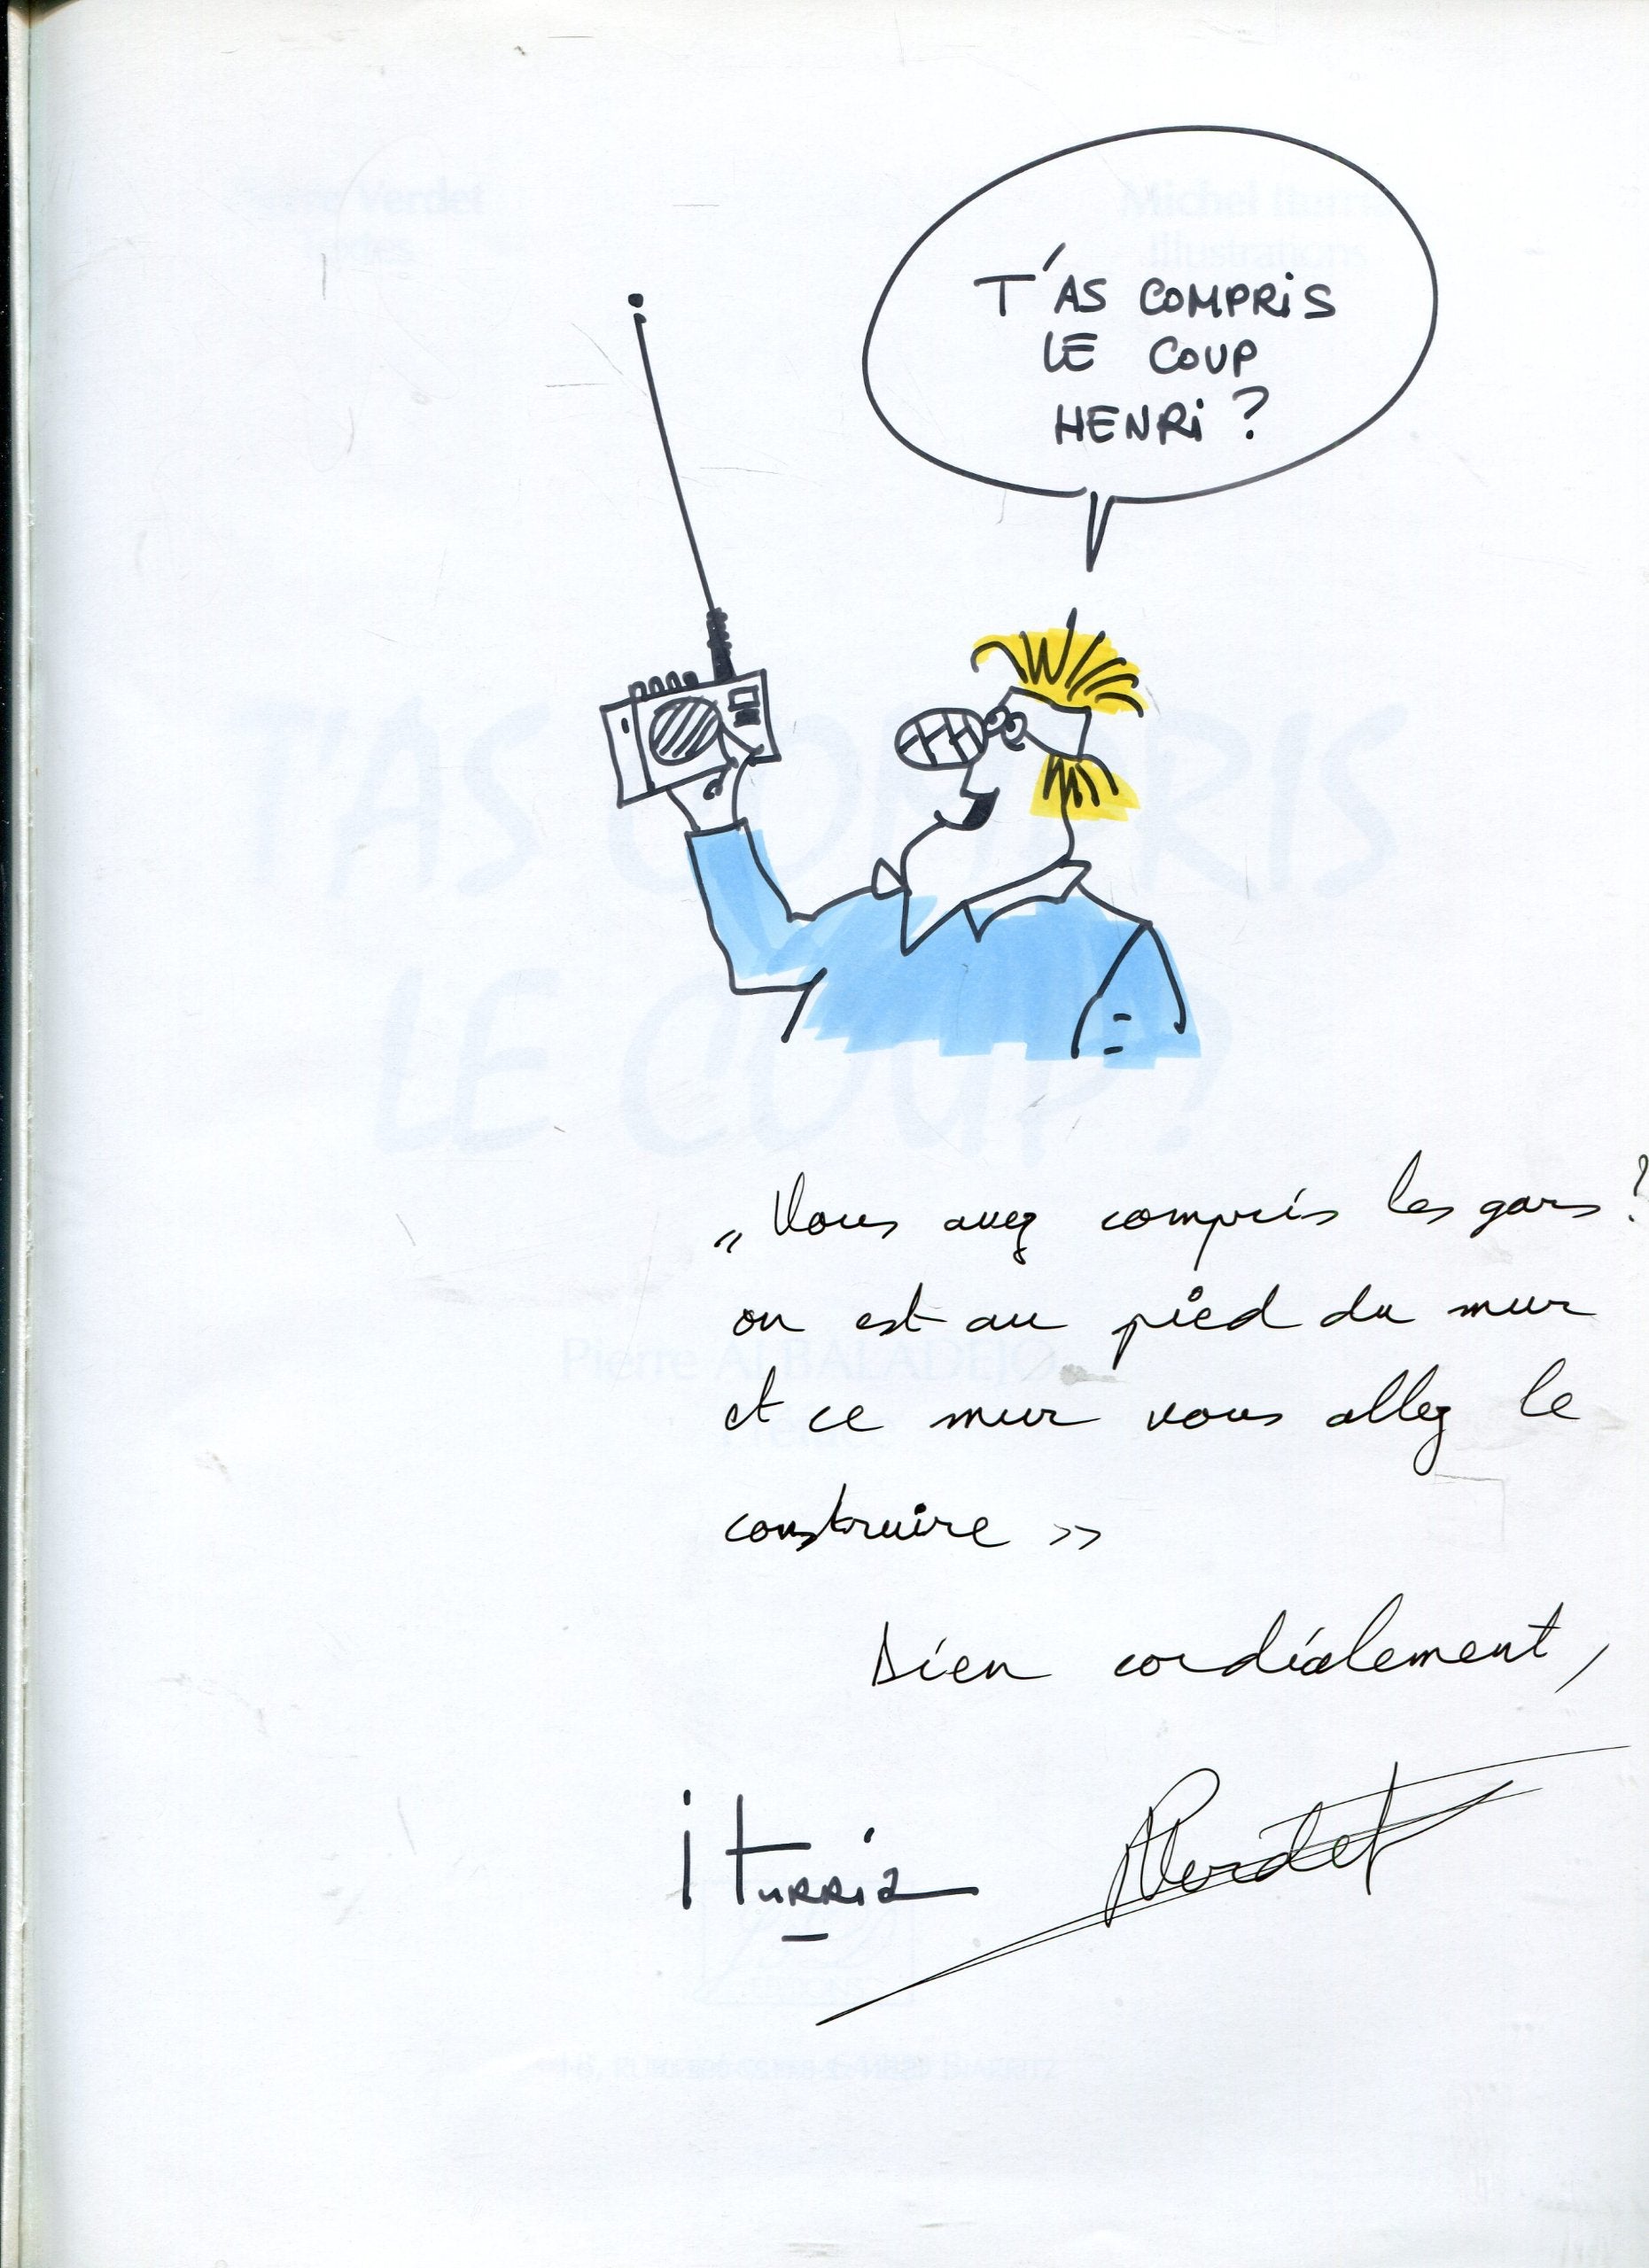 T'AS COMPRiS
LE COUP
HENRi ?
Verdet
Michel
Illustrations
T'AS COMPRIS
LE COUP ?
Pierre ALBALADEJO
„ Vous avez compris les gars ?
on est au pied du mur
et ce mur vous allez le
construire »
Bien cordialement,
iTURRiA
Verdet